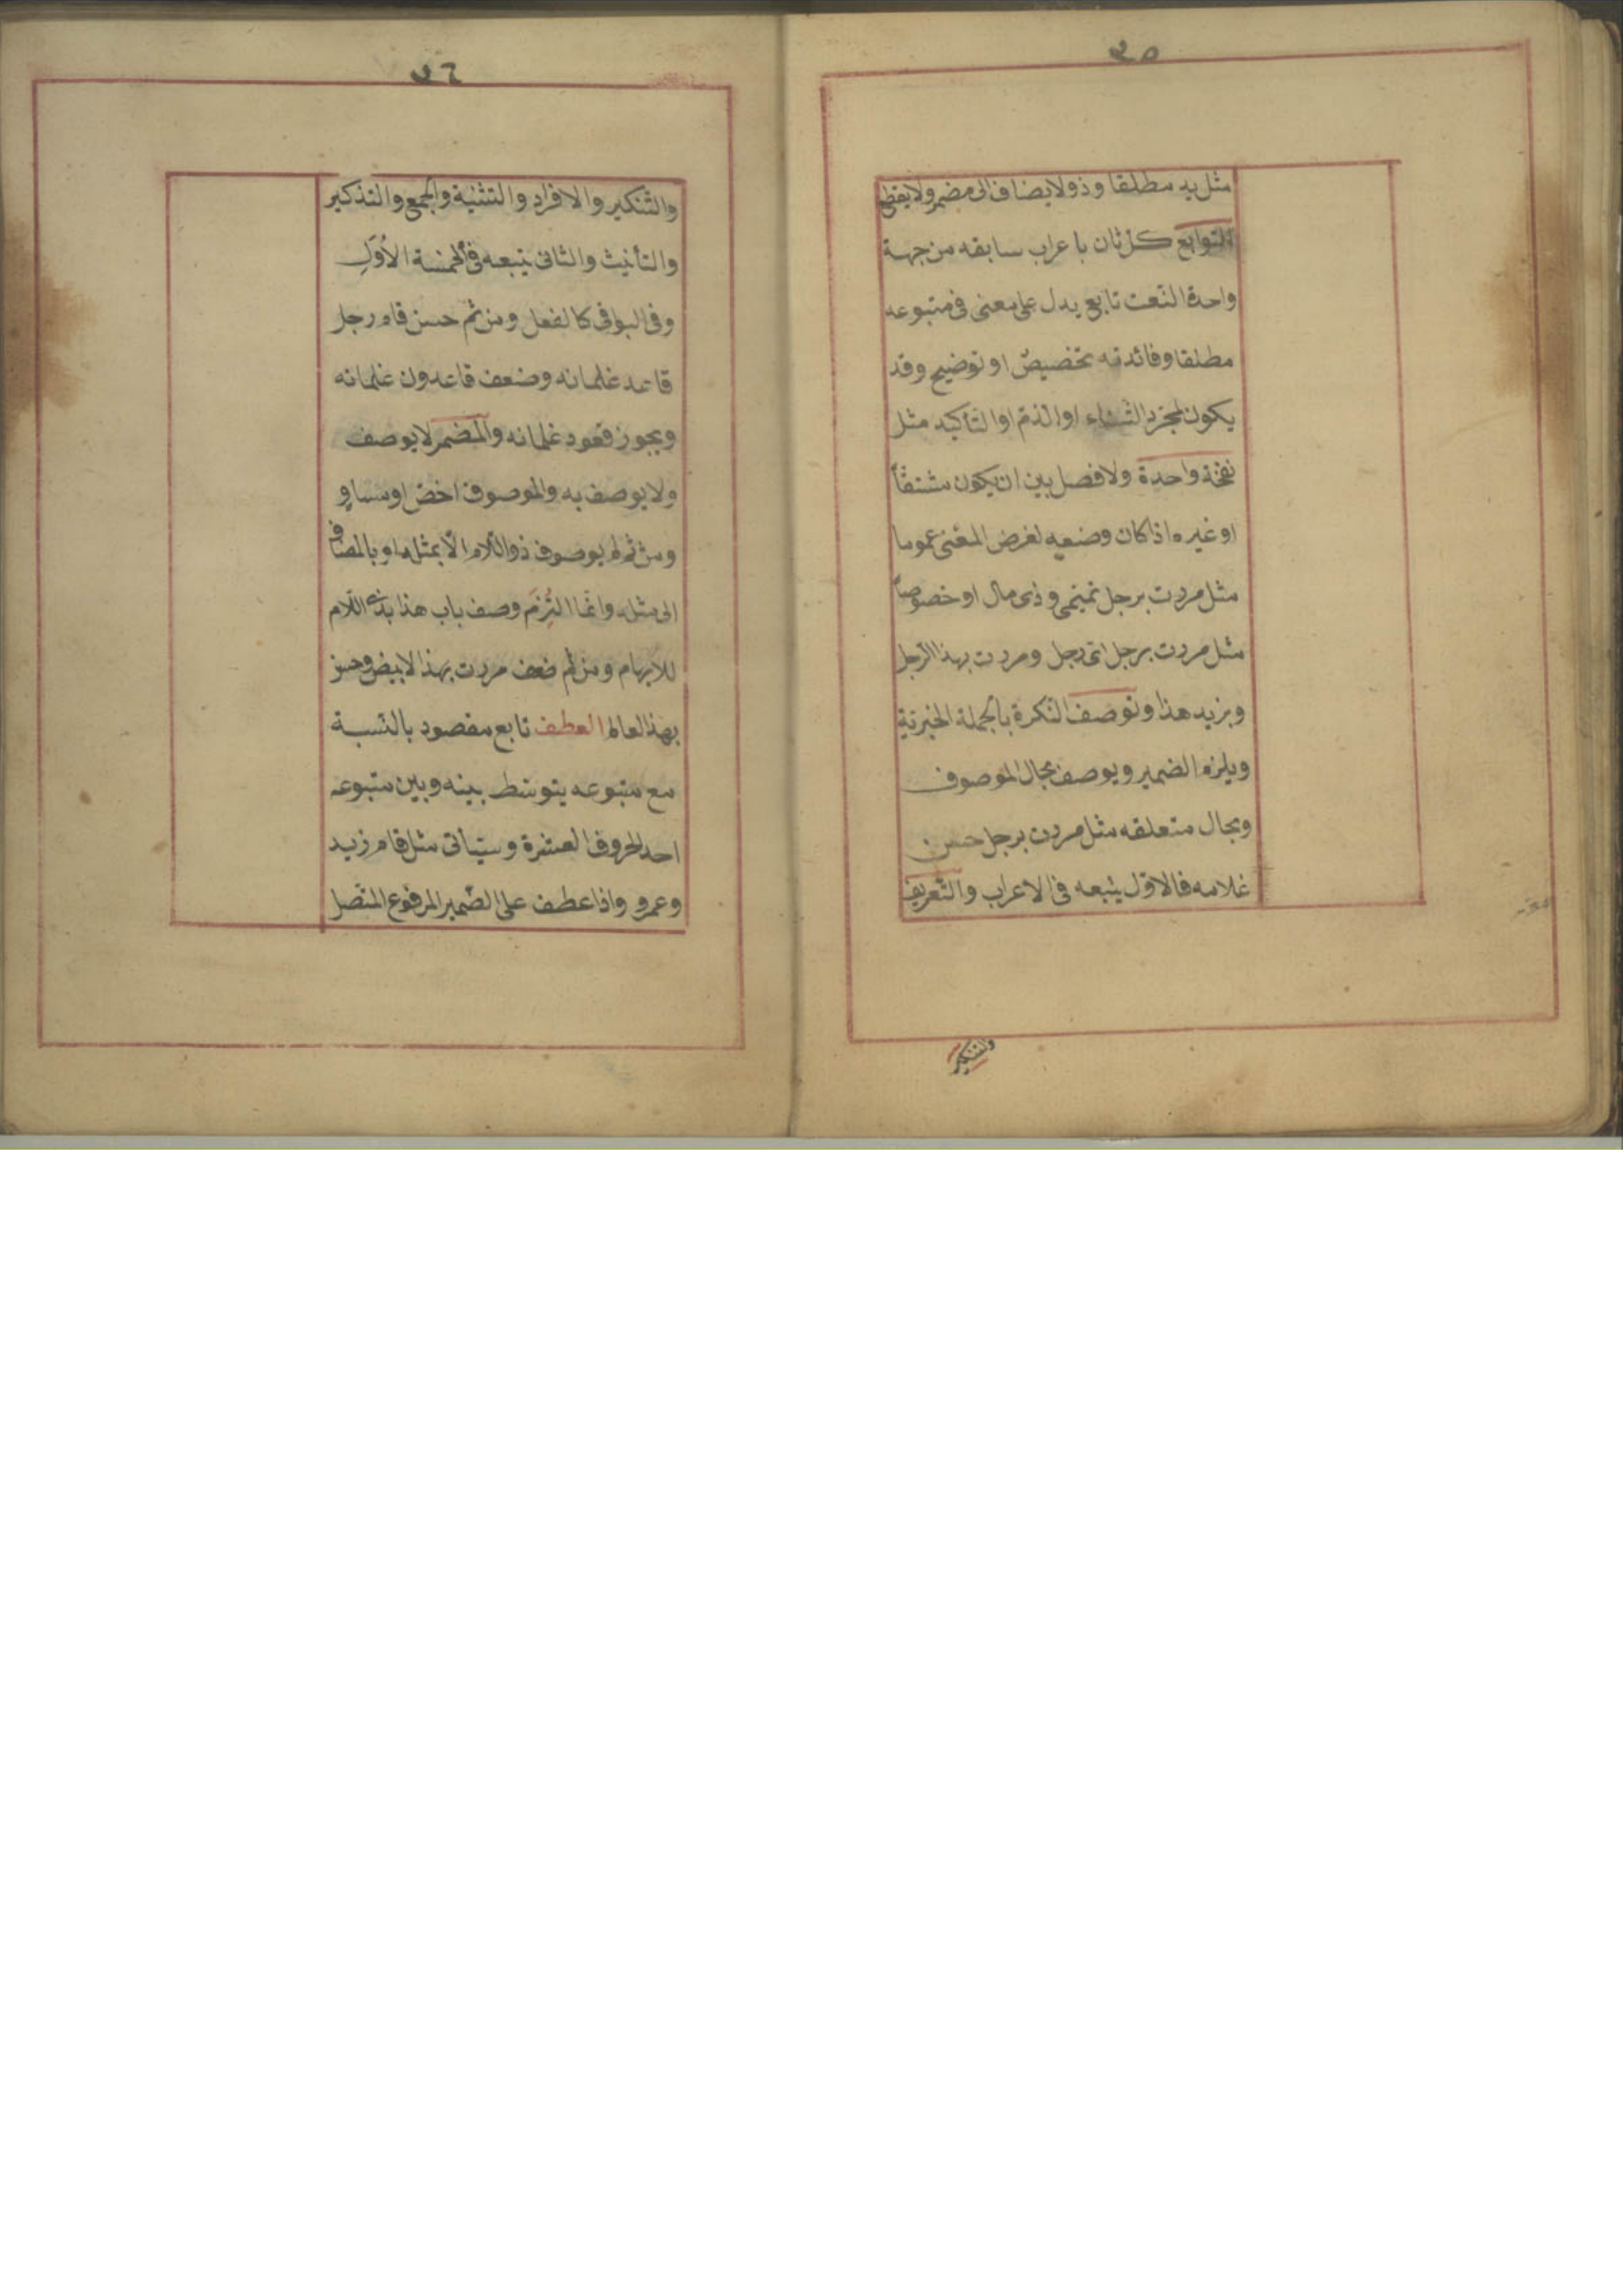 ٢٥
مثل يد مطلقا وذو لا يضاف الى مضمر ولا يقطع
التوابع كل ثان باعراب سابقه من جهة
واحدة النعت تابع يدل على معنى فى متبوعه
مطلقا وفائدته تخصيص او توضيح وقد
يكون لمجرد الثناء او الذم او التأكيد مثل
نفخة واحدة ولا فصل بين ان يكون مشتقاً
او غيره اذا كان وضعه لغرض المعنى عموما
مثل مررت برجل تميمى وذى مال او خصوصاً
مثل مررت برجل اى رجل ومررت بهذا الرجل
وبزيد هذا وتوصف النكرة بالجملة الخبرية
ويلزم الضمير ويوصف بحال الموصوف
وبحال متعلقه مثل مررت برجل حسن
غلامه فالاول يتبعه فى الاعراب والتعريف
والتنكير
٢٦
والتنكير والافراد والتثنية والجمع والتذكير
والتأنيث والثانى يتبعه فى الخمسة الاُوَلِ
وفى البواقى كالفعل ومن ثم حسن قام رجل
قاعد غلمانه وضعف قاعدون غلمانه
ويجوز قعود غلمانه والمضمر لا يوصف
ولا يوصف به والموصوف اخص او مساوٍ
ومن ثم لم يوصف ذو اللام الّا بمثله او بالمضاف
الى مثله وانما التُزِمَ وصف باب هذا بذى اللام
للابهام ومن ثم ضعف مررت بهذا الابيض وحسن
بهذا العالم العطف تابع مقصود بالنسبة
مع متبوعه يتوسط بينه وبين متبوعه
احد الحروف العشرة وسيأتى مثل قام زيد
وعمرو واذا عطف على الضمير المرفوع المتصل